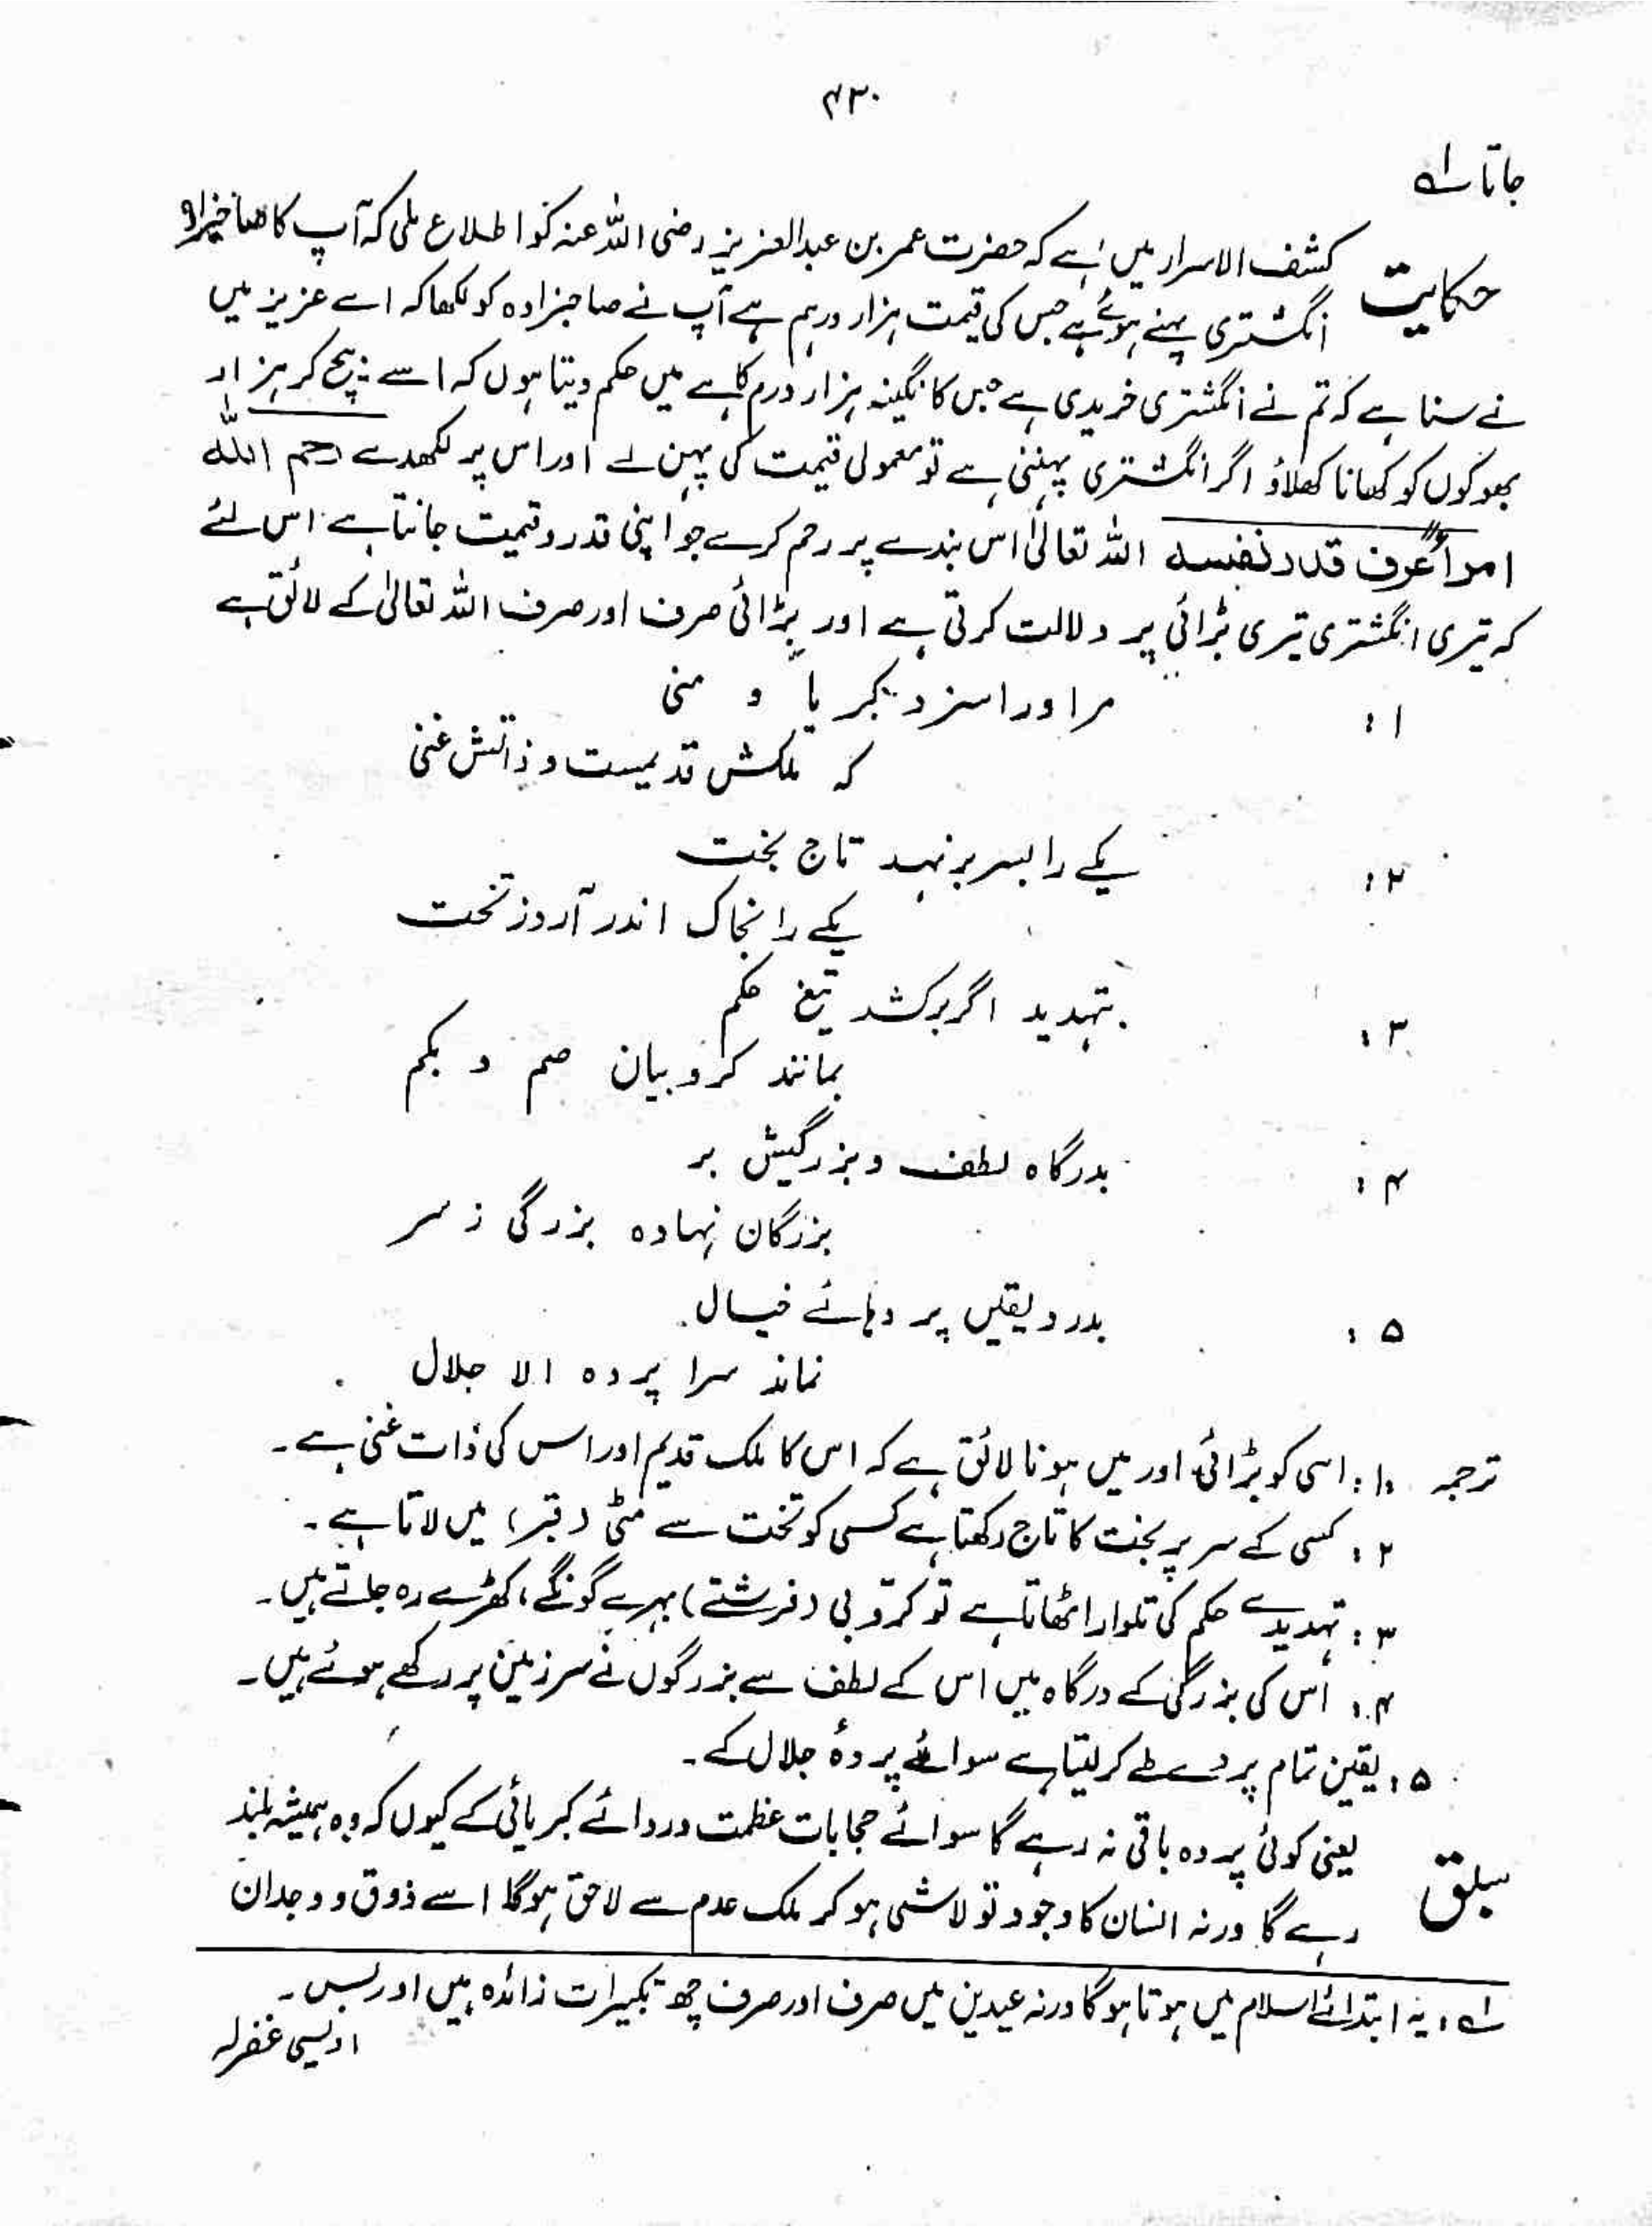 ۴۳۰
جاتا ہے
حکایت کشف الاسرار میں ہے کہ حضرت عمر بن عبدالعزیز رضی اللہ عنہ کو اطلاع ملی کہ آپ کا صاحبزادہ
انگشتری پہنے ہوئے ہے جس کی قیمت ہزار درہم ہے آپ نے صاحبزادہ کو لکھا کہ اے عزیز میں
نے سنا ہے کہ تم نے انگشتری خریدی ہے جس کا نگینہ ہزار درم کا ہے میں حکم دیتا ہوں کہ اسے بیچ کر ہزار
بھوکوں کو کھانا کھلاؤ اگر انگشتری پہننی ہے تو معمولی قیمت کی پہن لے اور اس پر لکھدے رحم اللہ
امرأ عرف قدر نفسہ اللہ تعالیٰ اس بندے پر رحم کرے جو اپنی قدر و قیمت جانتا ہے اس لئے
کہ تیری انگشتری تیری بڑائی پر دلالت کرتی ہے اور بڑائی صرف اور صرف اللہ تعالیٰ کے لائق ہے
۱: مر او را سزد کبریا و منی
کہ ملکش قدیمست و ذاتش غنی
۲: یکے را بسر بر نہد تاج بخت
یکے را بخاک اندر آرد ز تخت
۳: بتہدید اگر برکشد تیغ حکم
بمانند کروبیان صم و بکم
۴: بدرگاہ لطف و بزرگیش بر
بزرگان نہادہ بزرگی ز سر
۵: بدرد یقیں پردہائے خیال
نماند سرا پردہ الا جلال
ترجمہ ۱: اسی کو بڑائی اور میں ہونا لائق ہے کہ اس کا ملک قدیم اور اس کی ذات غنی ہے۔
۲: کسی کے سر پر بخت کا تاج رکھتا ہے کسی کو تخت سے مٹی (قبر) میں لاتا ہے۔
۳: تہدید سے حکم کی تلوار اٹھاتا ہے تو کروبی (فرشتے) بہرے گونگے، کھڑے رہ جاتے ہیں۔
۴: اس کی بزرگی کے درگاہ میں اس کے لطف سے بزرگوں نے سر زمین پر رکھے ہوئے ہیں۔
۵: یقین تمام پردے طے کر لیتا ہے سوائے پردۂ جلال کے۔
سبق یعنی کوئی پردہ باقی نہ رہے گا سوائے حجابات عظمت و ردائے کبریائی کے کیوں کہ وہ ہمیشہ بلند
رہے گا ورنہ انسان کا وجود تو لا شئی ہو کر ملک عدم سے لاحق ہوگا اسے ذوق و وجدان
لہ: یہ ابتدائے اسلام میں ہوتا ہوگا ورنہ عیدین میں صرف اور صرف چھ تکبیرات زائدہ ہیں اور بس۔
اویسی غفرلہ